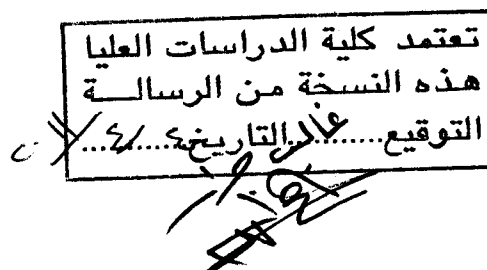 تعتمد كلية الدراسات العليا
هذه النسخة من الرسالـــة
التوقيع..........التاريخ٤../٤..